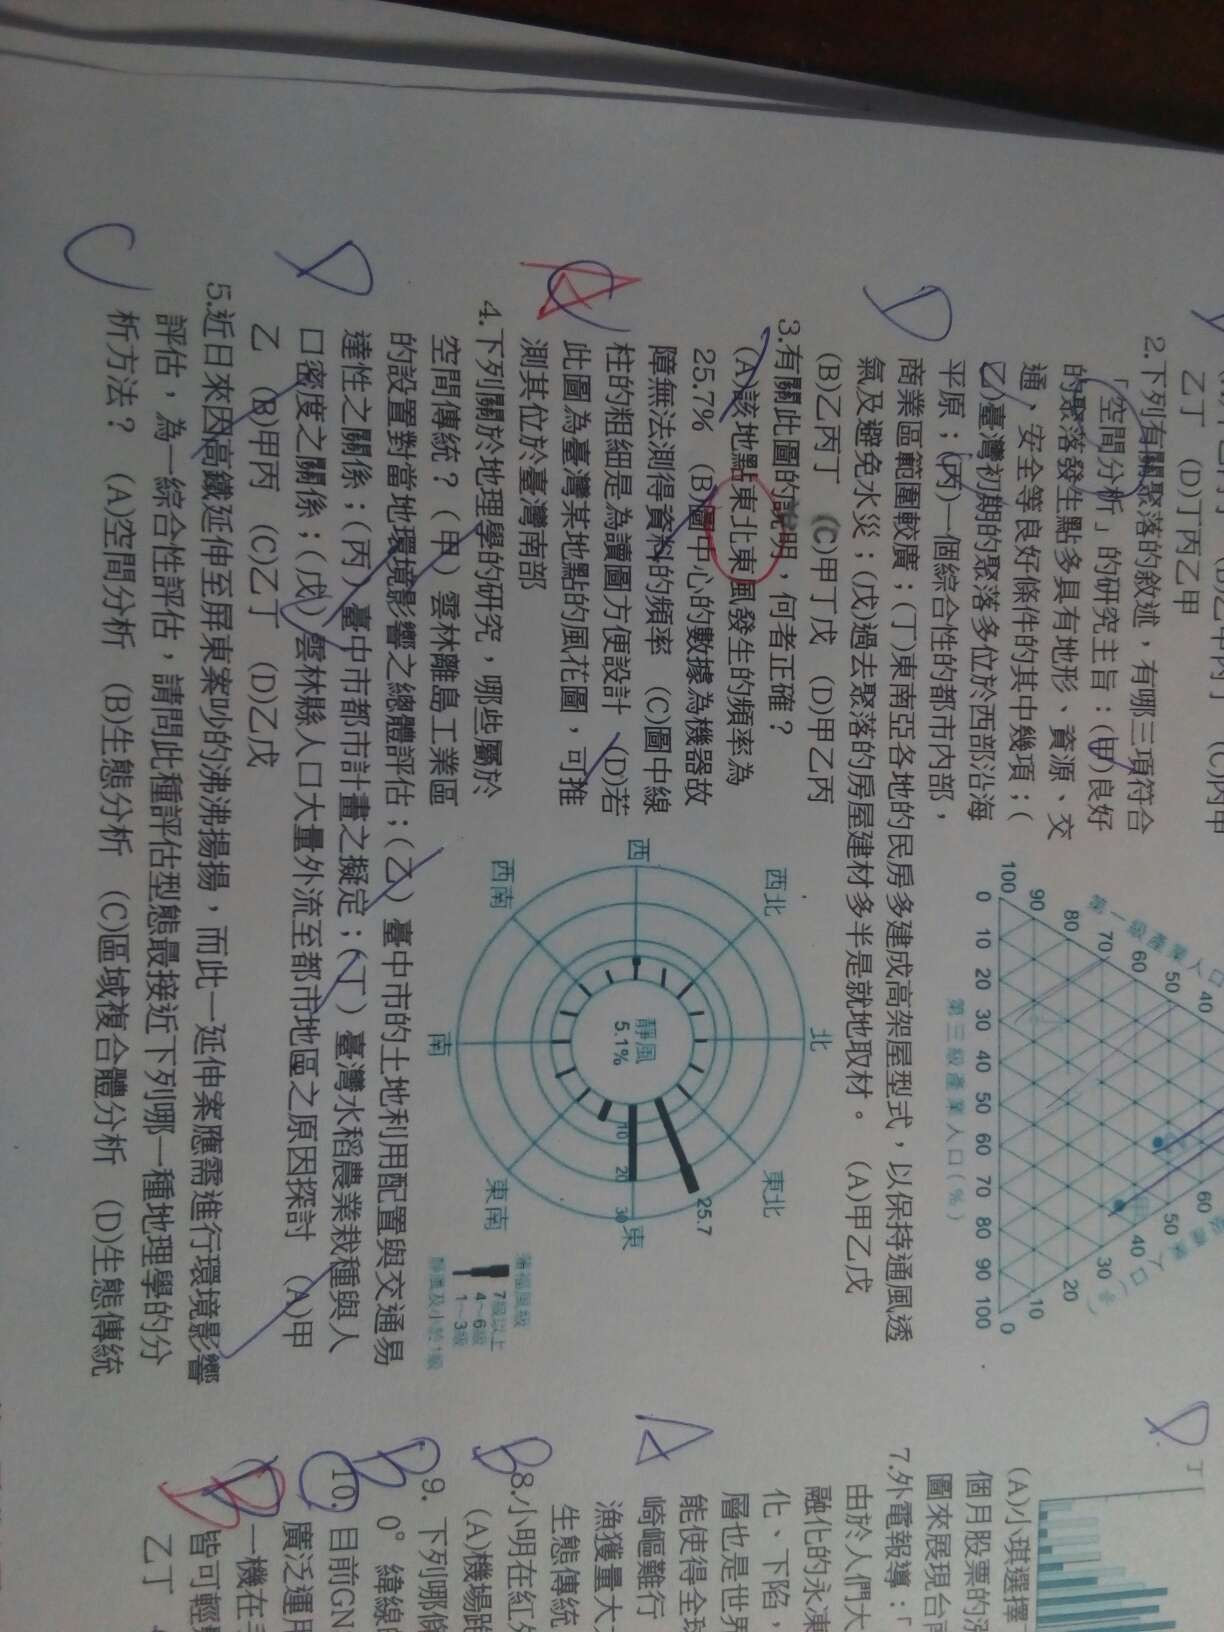 乙丁 (D)丁丙乙甲
2.下列有關聚落的敘述，有哪三項符合
「空間分析」的研究主旨：(甲)良好
的聚落發生點多具有地形、資源、交
通，安全等良好條件的其中幾項；(
乙)臺灣初期的聚落多位於西部沿海
平原；(丙)一個綜合性的都市內部，
商業區範圍較廣；(丁)東南亞各地的民房多建成高架屋型式，以保持通風透
氣及避免水災；(戊)過去聚落的房屋建材多半是就地取材。 (A)甲乙戊
(B)乙丙丁 (C)甲丁戊 (D)甲乙丙
D
40
50
60
70
80
90
100
0 10 20 30 40 50 60 70 80 90 100
第三級產業人口(%)
60
50
40
30
20
10
0
3.有關此圖的說明，何者正確？
(A)該地點東北東風發生的頻率為
25.7% (B)圖中心的數據為機器故
障無法測得資料的頻率 (C)圖中線
柱的粗細是為讀圖方便設計 (D)若
此圖為臺灣某地點的風花圖，可推
測其位於臺灣南部
A
北
西北
東北
西
東
西南
東南
南
靜風
5.1%
10
20
30
25.7
蒲福風級
7級以上
4~6級
1~3級
靜風及小於1級
4.下列關於地理學的研究，哪些屬於
空間傳統？(甲)雲林離島工業區
的設置對當地環境影響之總體評估；(乙)臺中市的土地利用配置與交通易
達性之關係；(丙)臺中市都市計畫之擬定；(丁)臺灣水稻農業栽種與人
口密度之關係；(戊)雲林縣人口大量外流至都市地區之原因探討 (A)甲
乙 (B)甲丙 (C)乙丁 (D)乙戊
D
5.近日來因高鐵延伸至屏東案吵的沸沸揚揚，而此一延伸案應需進行環境影響
評估，為一綜合性評估，請問此種評估型態最接近下列哪一種地理學的分
析方法？ (A)空間分析 (B)生態分析 (C)區域複合體分析 (D)生態傳統
C
D
(A)小琪選擇
個月股票的漲
圖來展現台
7.外電報導：「
由於人們大
融化的永凍
化、下陷，
層也是世界
能使得全球
崎嶇難行
漁獲量大
生態傳統
A
8.小明在紅
(A)機場跑
B
9. 下列哪條
0°緯線
B
10. 目前GN
廣泛運用
一機在
皆可輕
乙丁
B